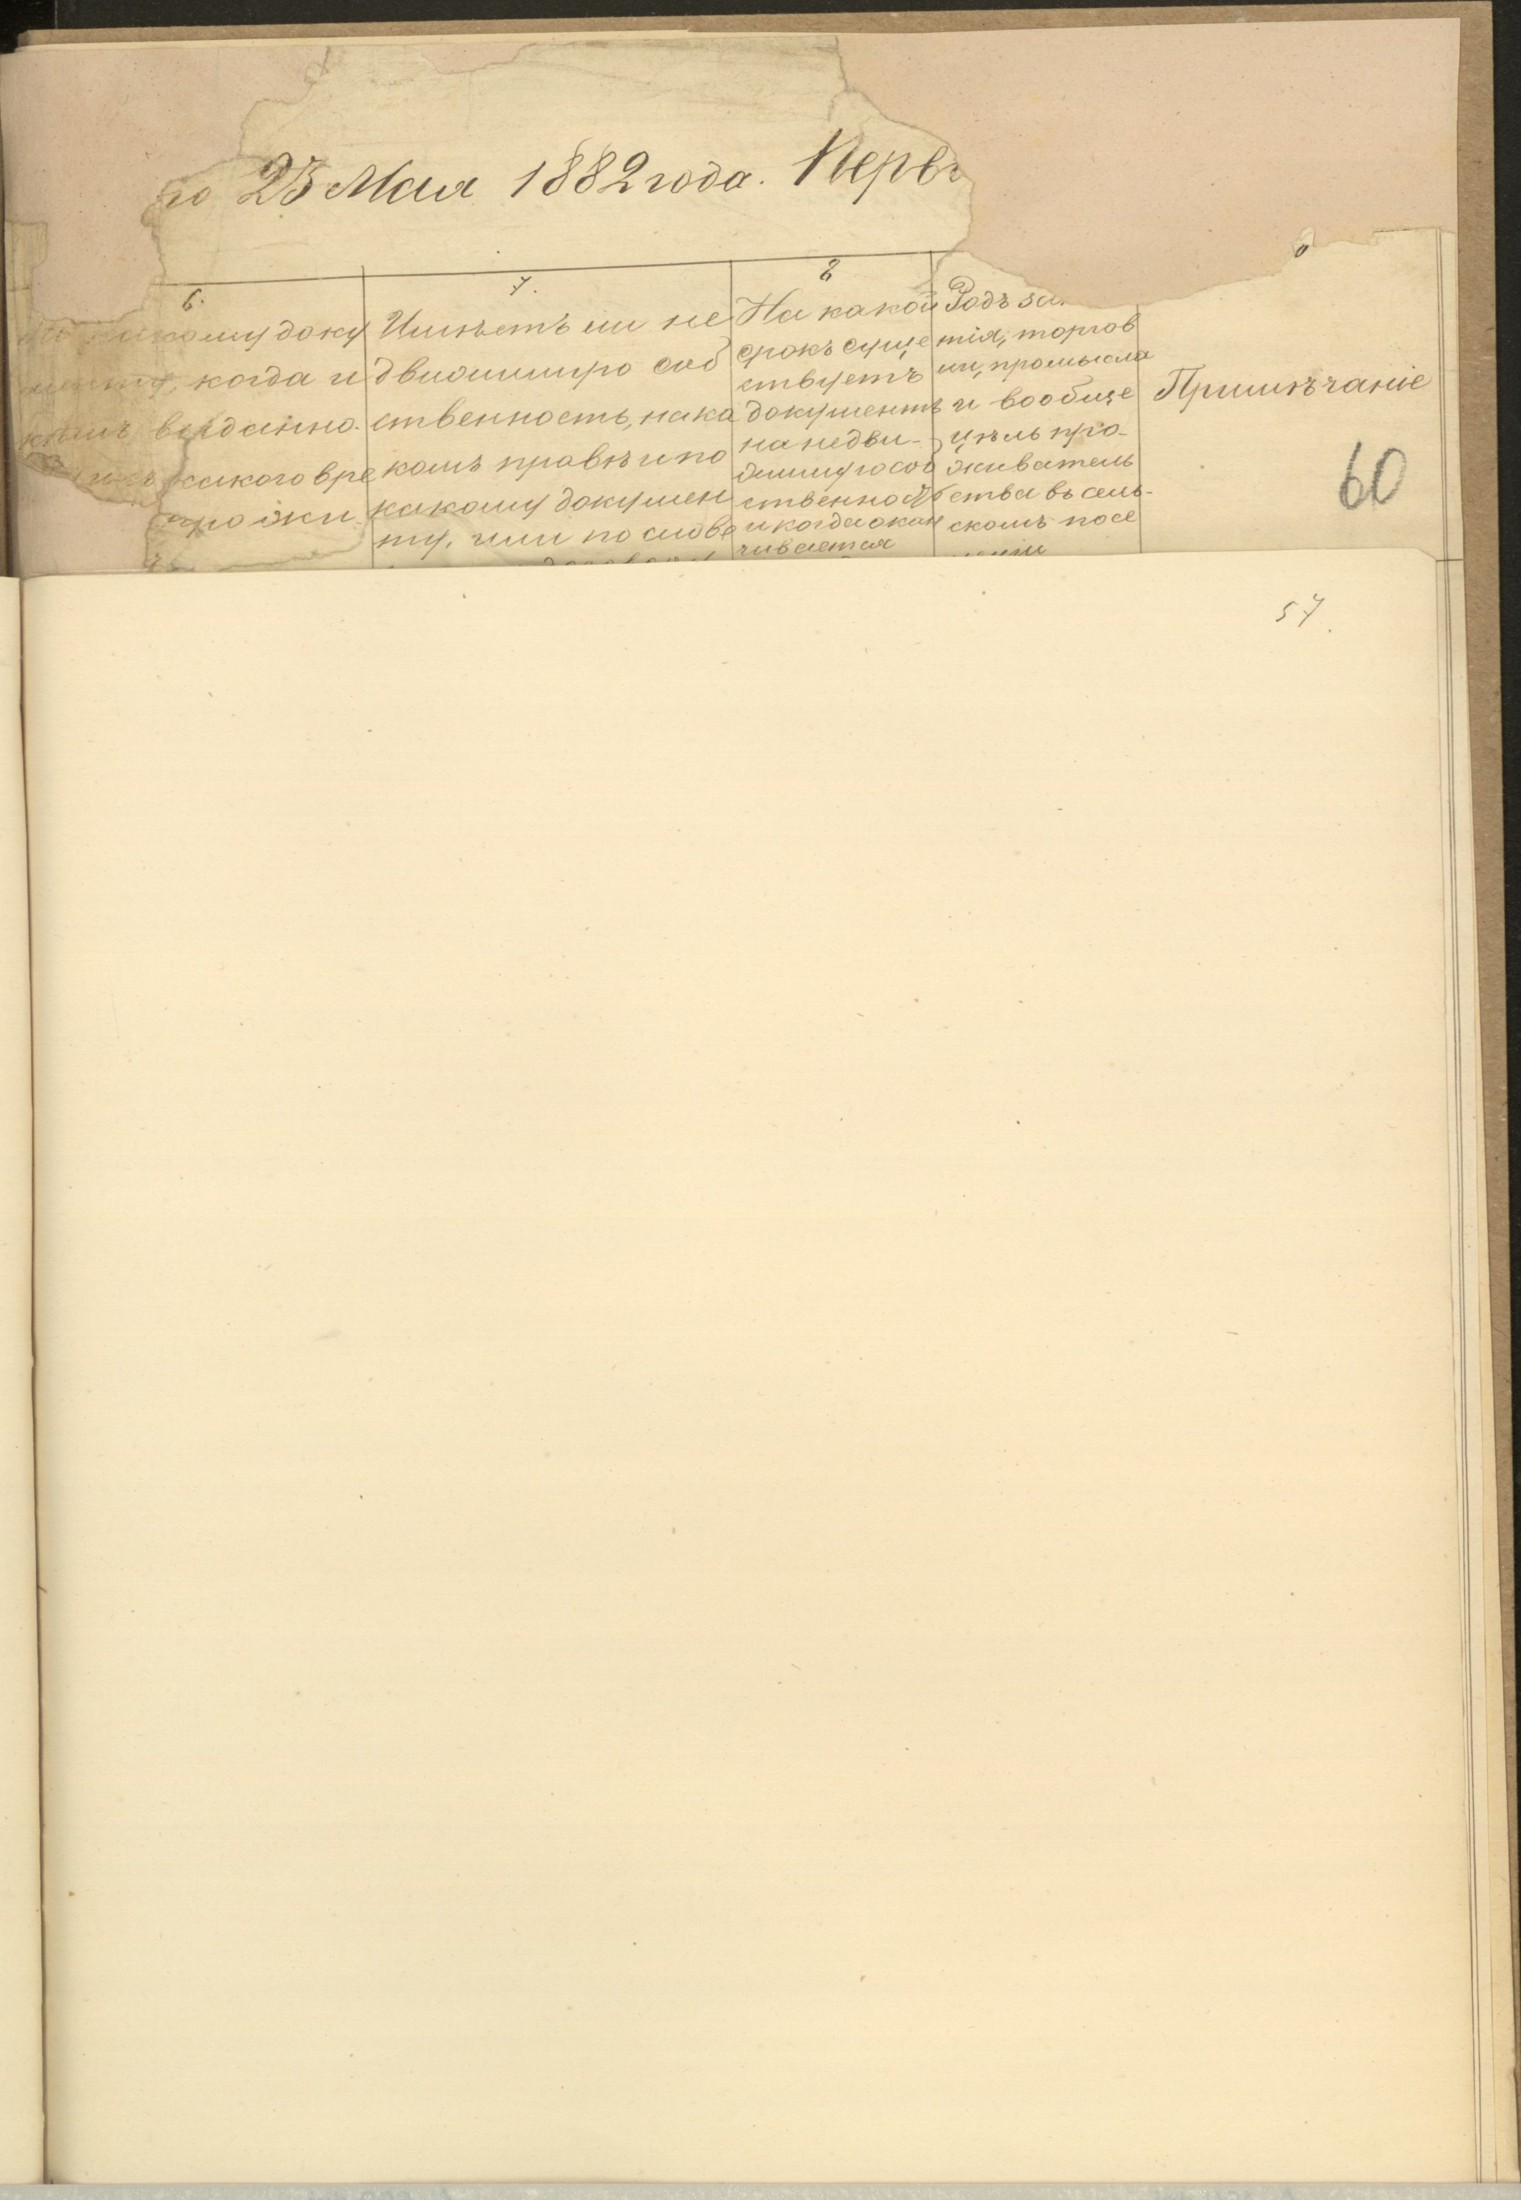 го 25 Мая 1882 года. Первы
6.
какому доку
менту, когда и
кѣмъ выданно.
какого вре
прожи
7.
Имѣетъ ли не
движимую соб
ственность, на ка
комъ правѣ и по
какому докумен
ту, или по слове
8
На какой
срокъ суще
ствуетъ
документъ
на недви-
жимую соб
ственность
и когда окан
чивается
Родъ за
тія, торгов
ли, промысла
и вообще
цѣль про-
живатель
ства въ сель-
скомъ посе
Примѣчаніе
60
57.